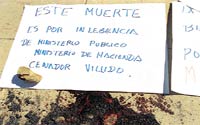 ESTE MUERTE
ES POR INLEBENCIA
DE MINISTERIO PUBLICO
MINISTERIO DE HACIENDA
CENADOR VILLIDO.